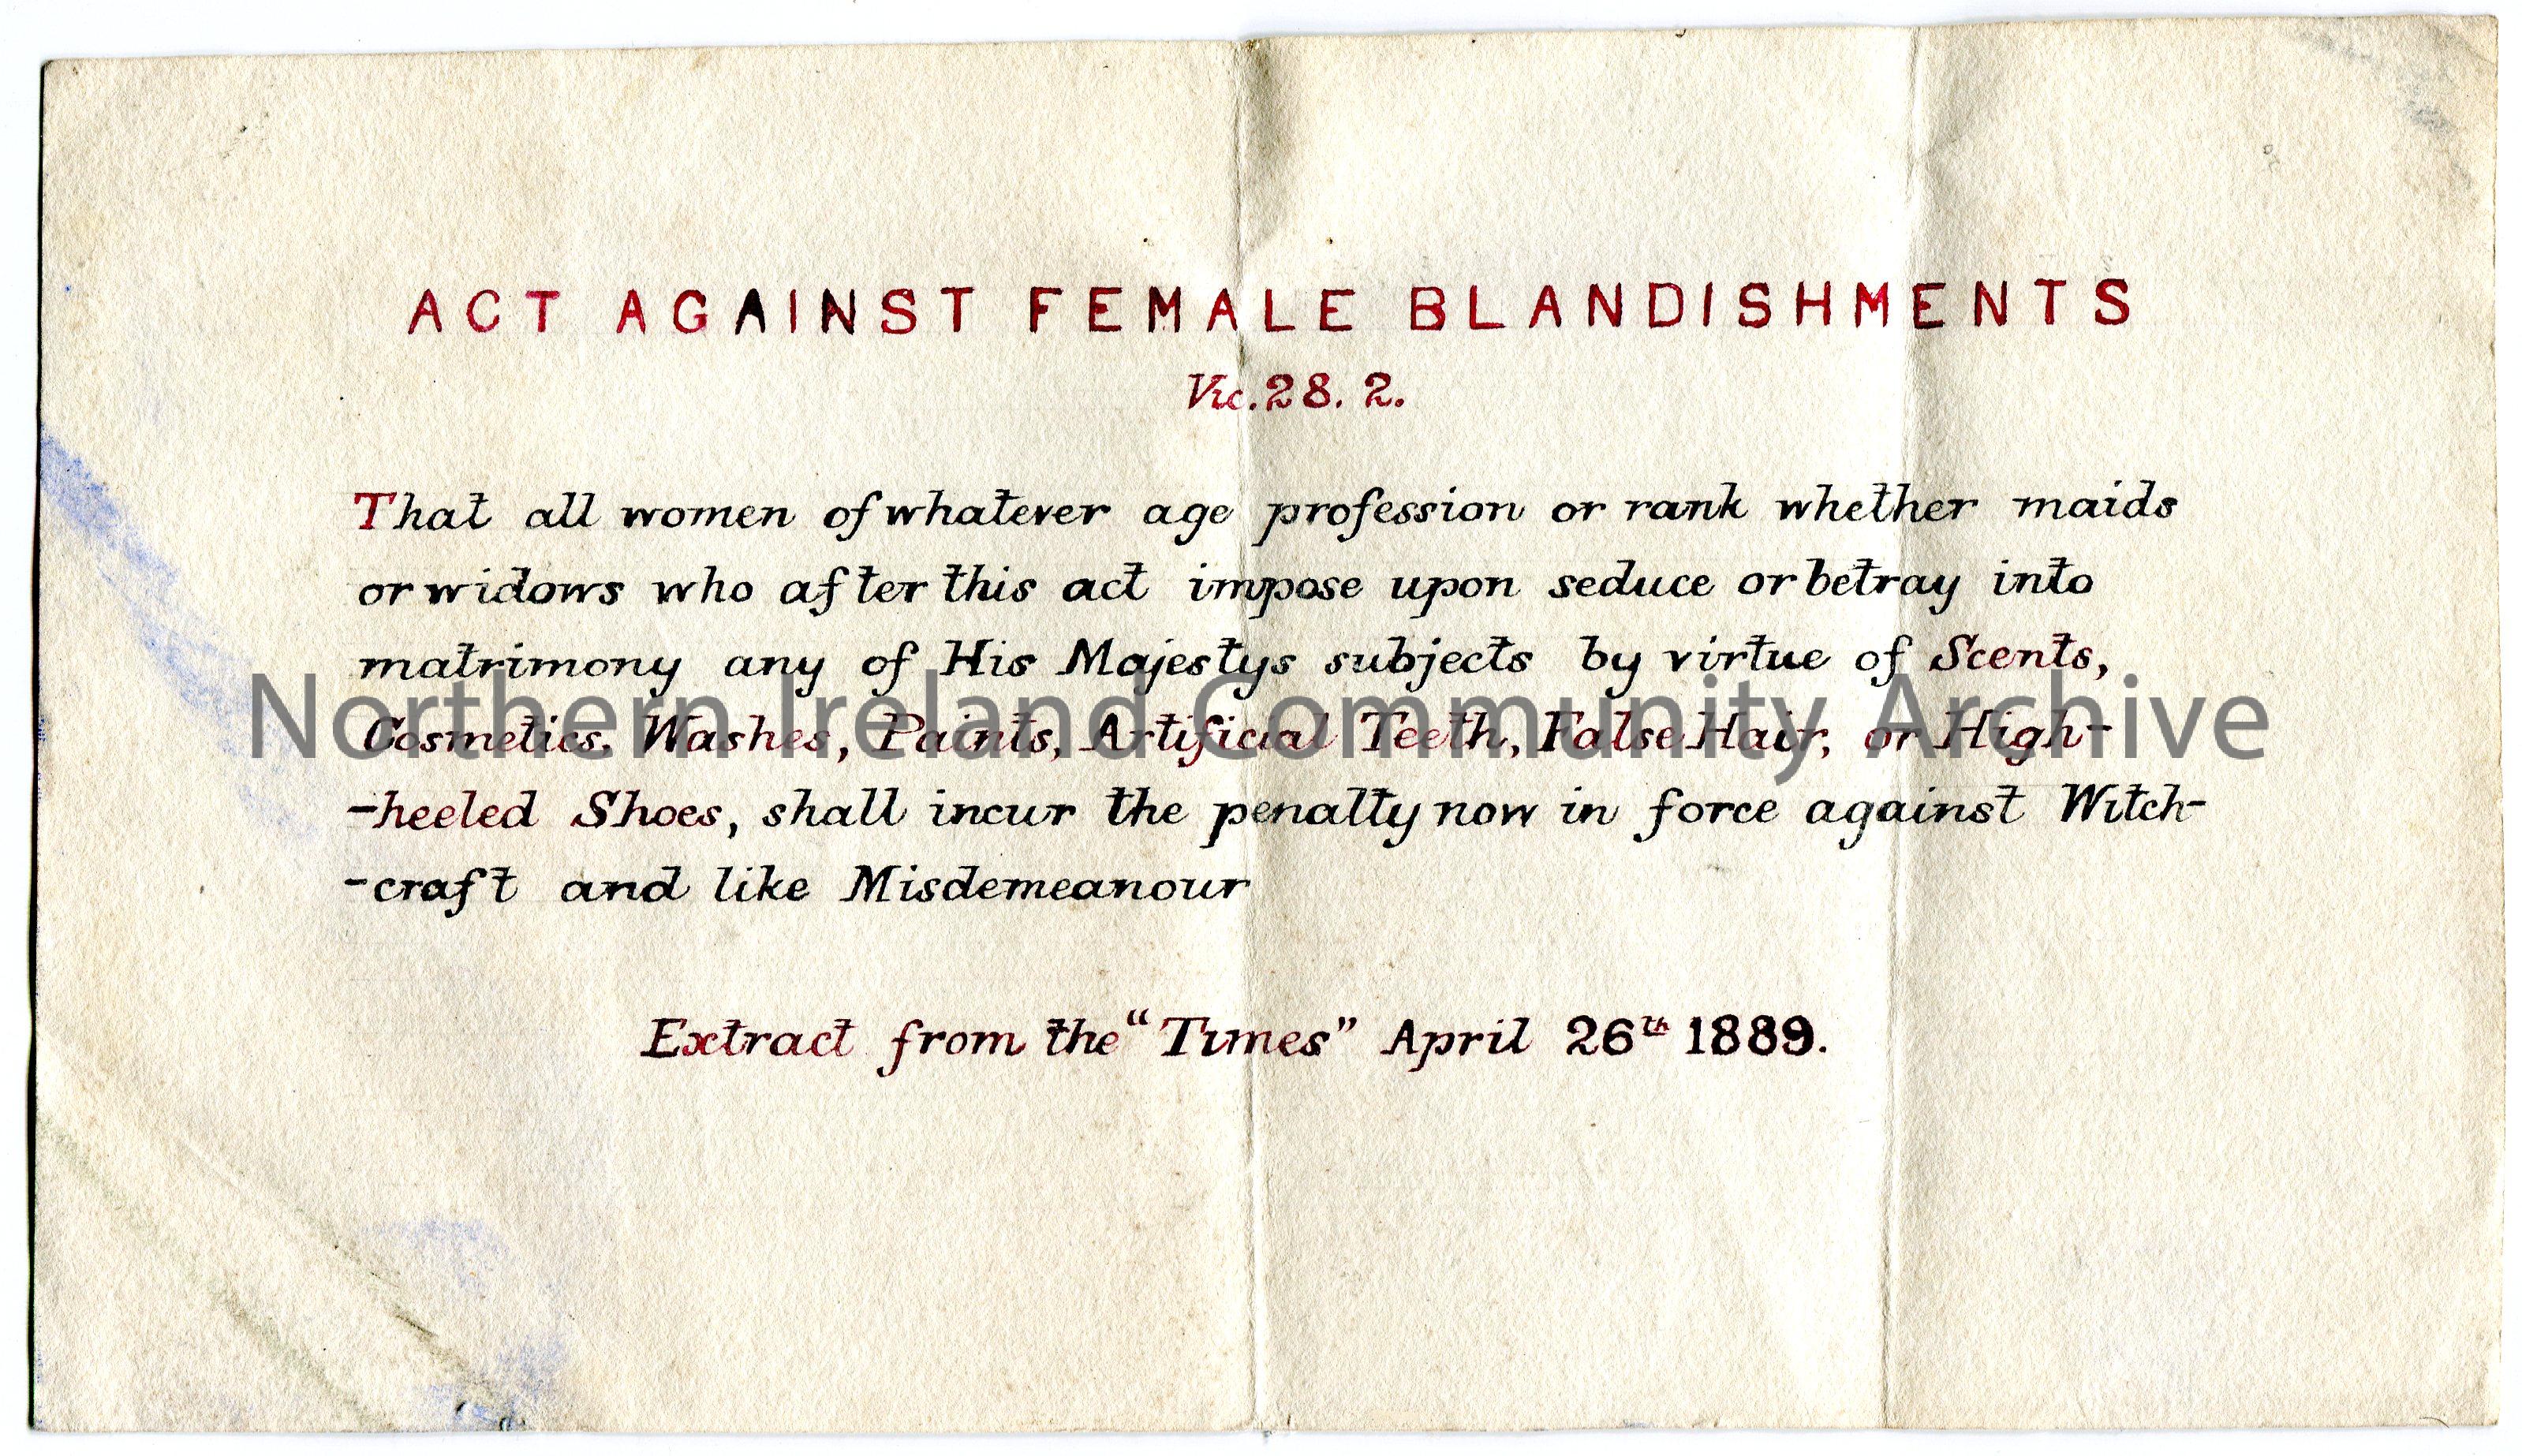 ACT AGAINST FEMALE BLANDISHMENTS
Vic. 28. 2.
That all women of whatever age profession or rank whether maids
or widows who after this act impose upon seduce or betray into
matrimony any of His Majestys subjects by virtue of Scents,
Northern Ireland Community Archive
Cosmetics. Washes, Paints, Artificial Teeth, False Hair, or High-
-heeled Shoes, shall incur the penalty now in force against Witch-
-craft and like Misdemeanour
Extract from the "Times" April 26th 1889.